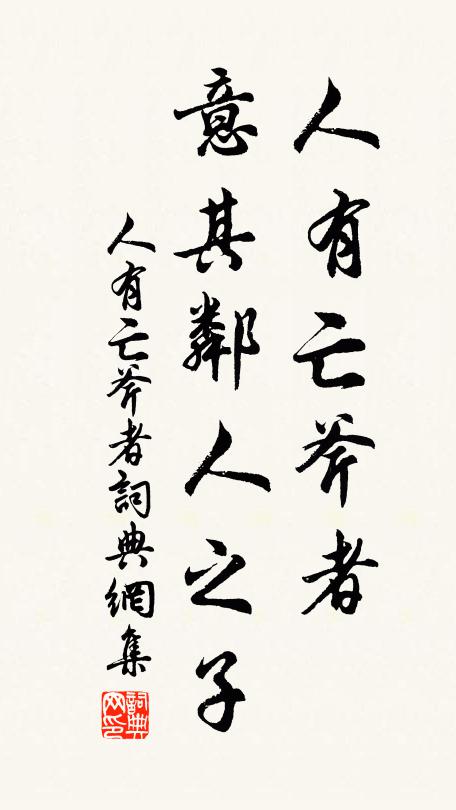 人有亡斧者
意其鄰人之子
人有亡斧者詞典網集
詞典
网印